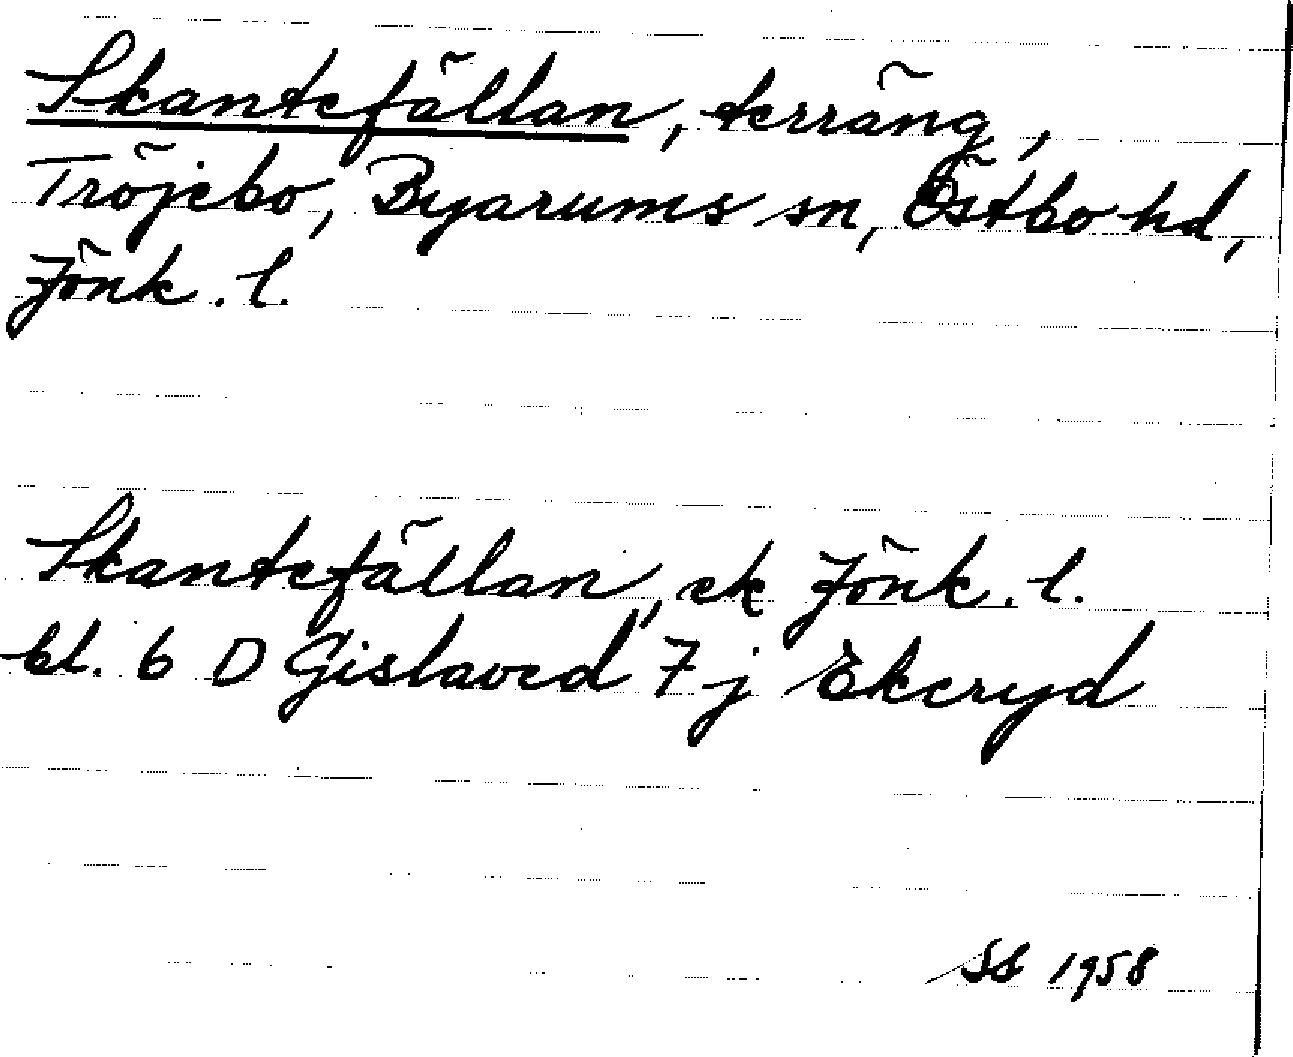 Skantefällan, terräng,
Tröjebo, Byarums sn, Östbo hd,
Jönk. l.
Skantefällan, ek Jönk. l.
bl. 6 D Gislaved 7 j Ekeryd
SS 1958